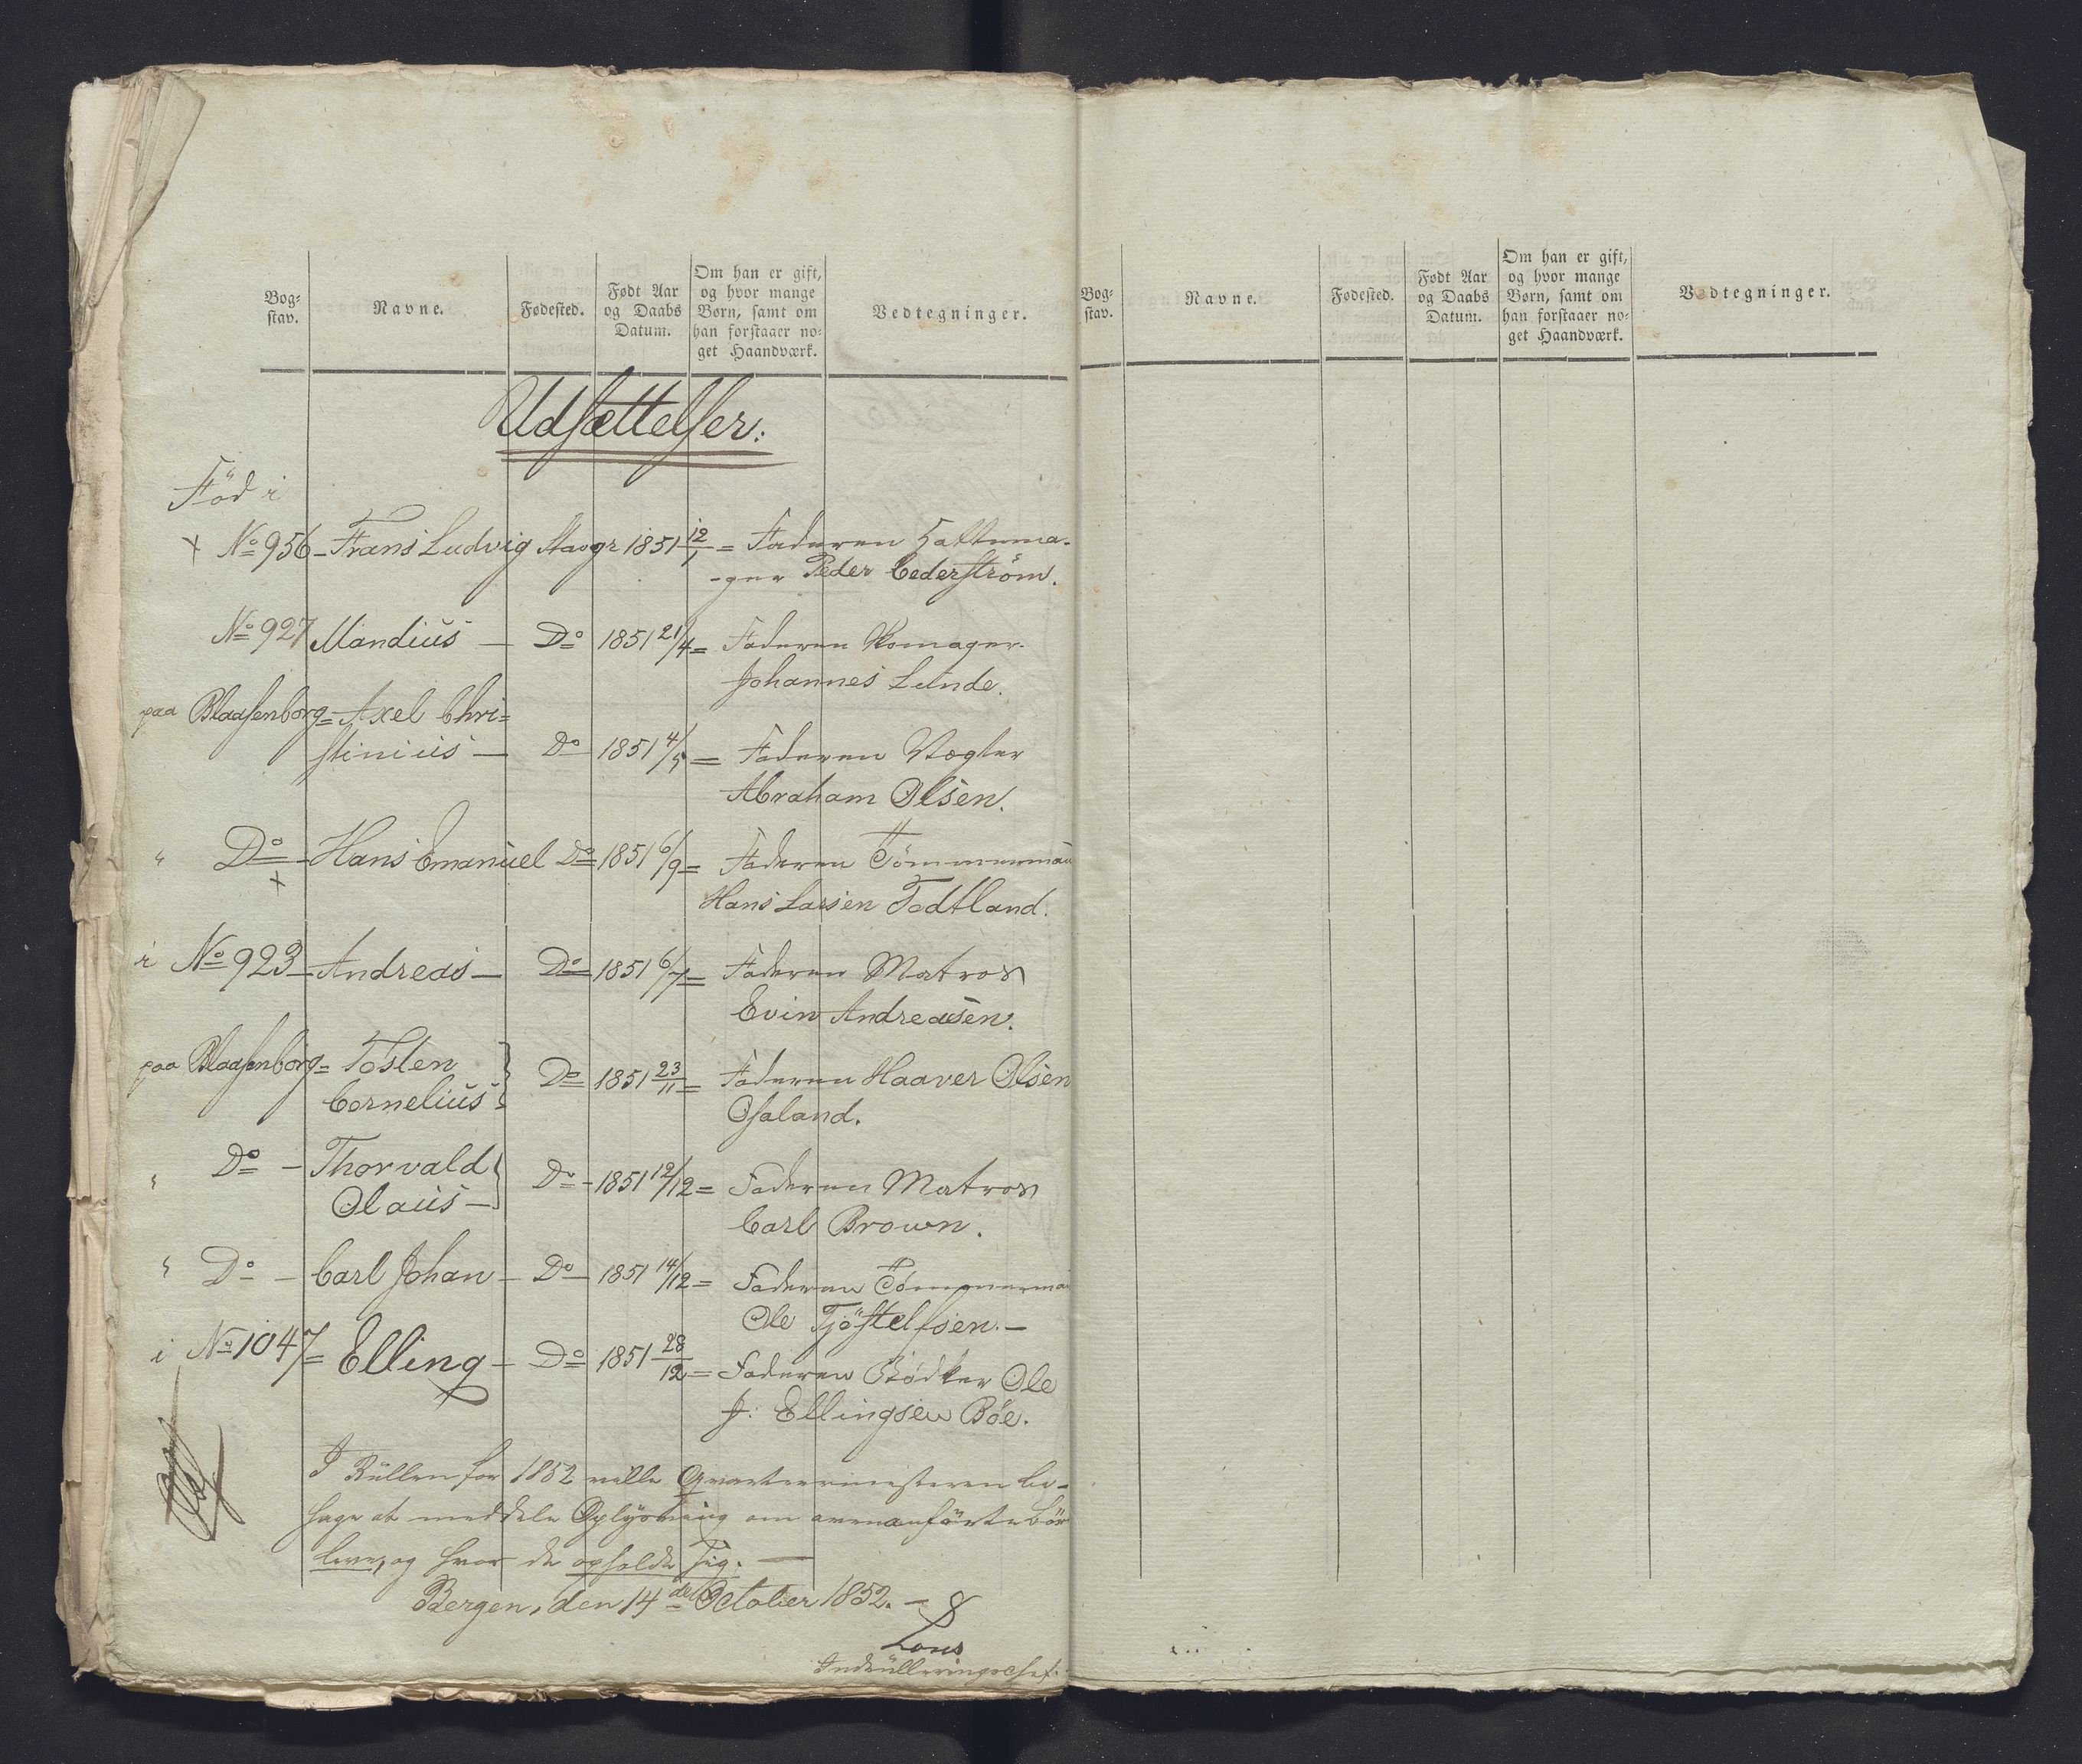 Bog-
stav.
Navne.
Fødested.
Født Aar
og Daabs
Datum.
Om han er gift,
og hvor mange
Børn, samt om
han forstaaer no-
get Haandværk.
Vedtegninger.
Udsættelser.
Föd i
x No 956 - Frans Ludvig Stavgr 1851 12/1 = Faderen Hattema-
-ger Peder Cederström.
No 927 Mandius — Do 1851 21/4 = Faderen Skomager
Johannes Lunde.
paa Blaasenborg = Axel Chri=
stinius — Do 1851 4/5 = Faderen Vægter
Abraham Olsen.
" Do - Hans Emanuel Do 1851 6/9 = Faderen Tömmerman
x
Hans Larsen Todtland.
i No 923 - Andreas — Do 1851 6/7 = Faderen Matros
Evin Andreasen.
paa Blaasenborg = Tosten
Cornelius } Do 1851 23/11 = Faderen Haaver Olsen
Osaland.
" Do - Thorvald
Olaus — } Do - 1851 12/12 = Faderen Matros
Carl Brown.
" Do - Carl Johan - Do 1851 14/12 = Faderen Tömmerma
Ole Tjöstelfsen. —
i No 1047 = Elling - Do 1851 28/12 = Faderen Bödker Ole
J: Ellingsen Böe.
I Rullen for 1852 ville Qvarteermesteren be-
hage at meddele Oplysning om ovenanförte Bör
leve, og hvor de opholde sig. —
Bergen, den 14de October 1852. —
Lous
Indrulleringschef.
Bog-
stav.
Navne.
Fødested.
Født Aar
og Daabs
Datum.
Om han er gift,
og hvor mange
Børn, samt om
han forstaaer no-
get Haandværk.
Vedtegninger.